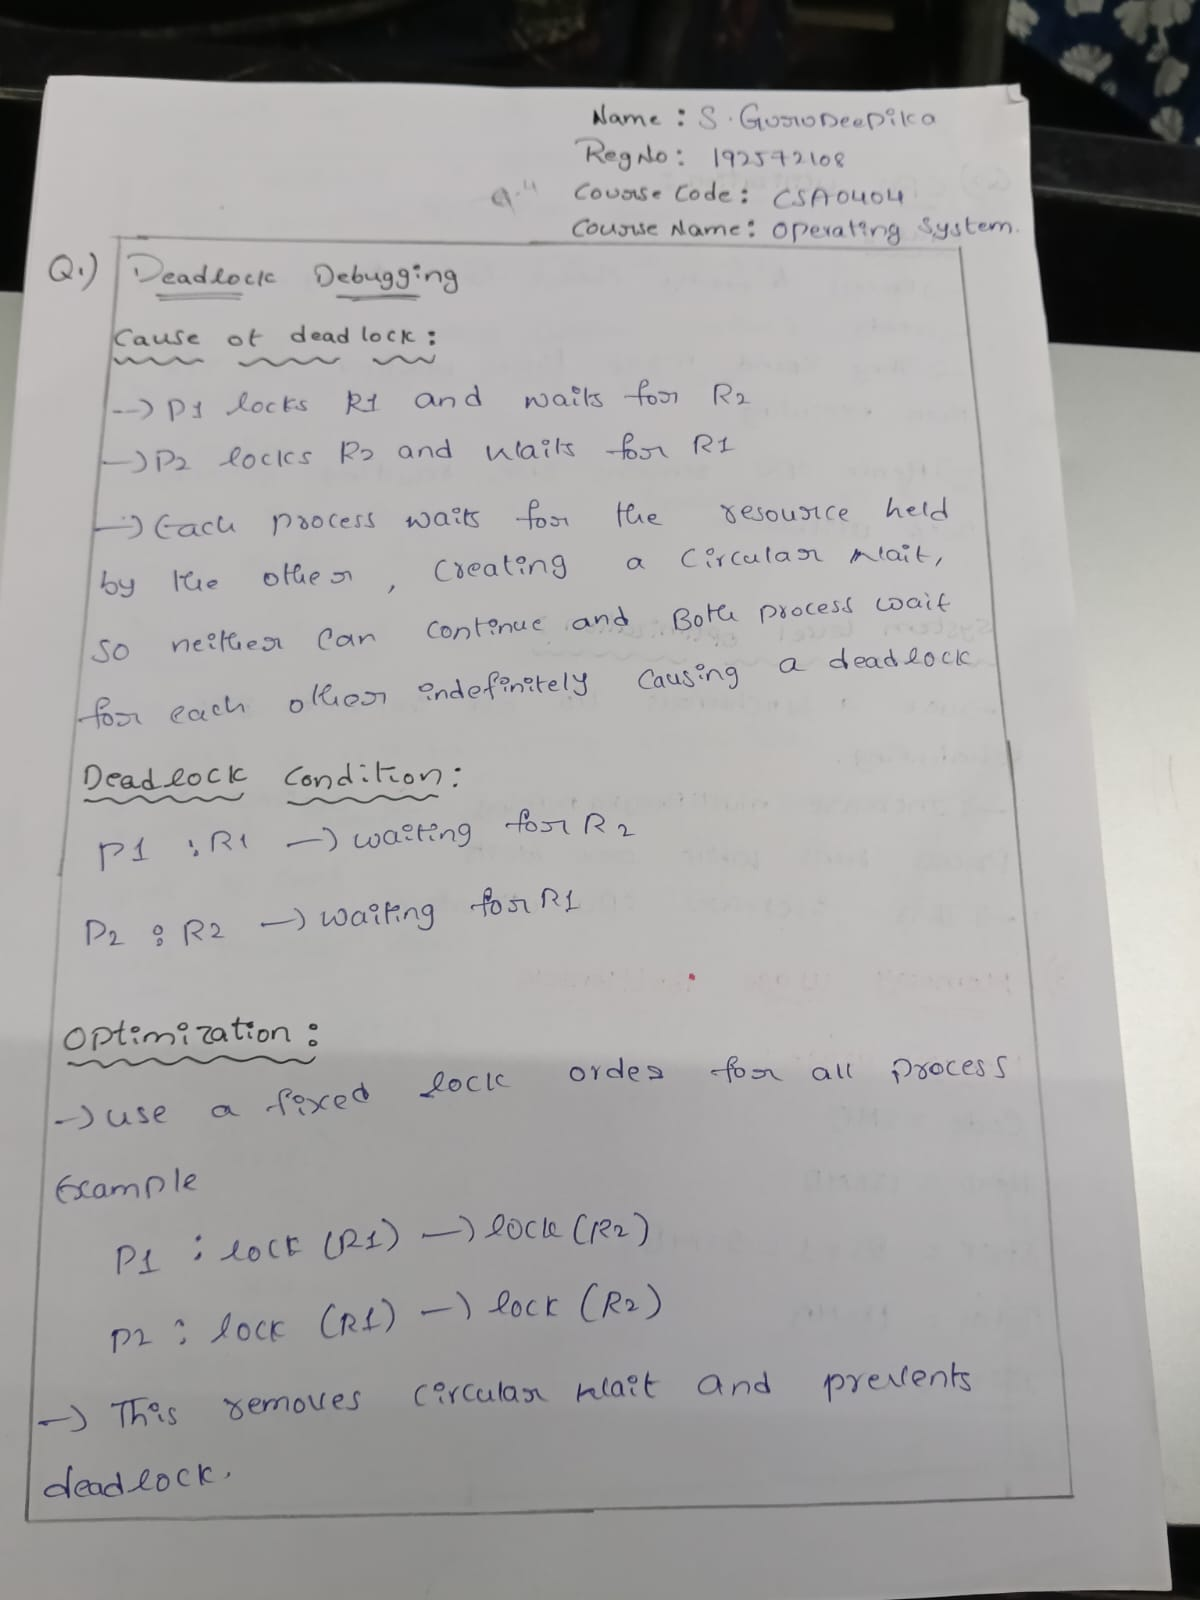 Name : S. GuruDeepika
Reg No : 192572108
Course Code : CSA0404
Course Name : Operating System.
Q1) Deadlock Debugging
Cause of dead lock :
→ P1 locks R1 and waits for R2
→ P2 locks R2 and waits for R1
→ Each process waits for the resource held
by the other , Creating a Circular wait,
so neither Can continue and Both process wait
for each other indefinitely Causing a deadlock
Deadlock Condition :
P1 : R1 → waiting for R2
P2 : R2 → waiting for R1
Optimization :
→ use a fixed lock order for all process
Example
P1 : lock (R1) → lock (R2)
P2 : lock (R1) → lock (R2)
→ This removes Circular wait and prevents
deadlock.